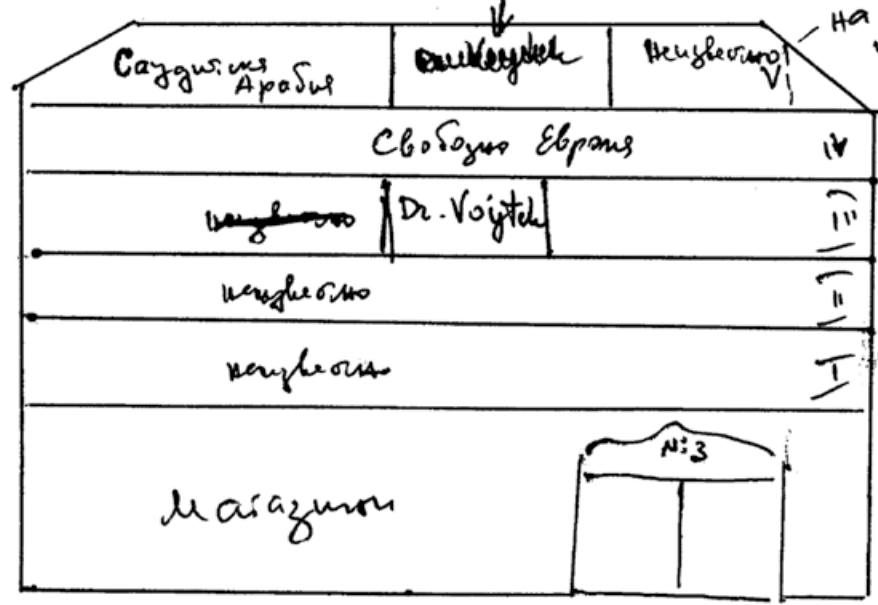 на
Саудитска
Арабия
Неизвестно
V
Свободна Европа
IV
неизвестно
Dr. Vojtek
III
неизвестно
II
неизвестно
I
№ 3
Магазини